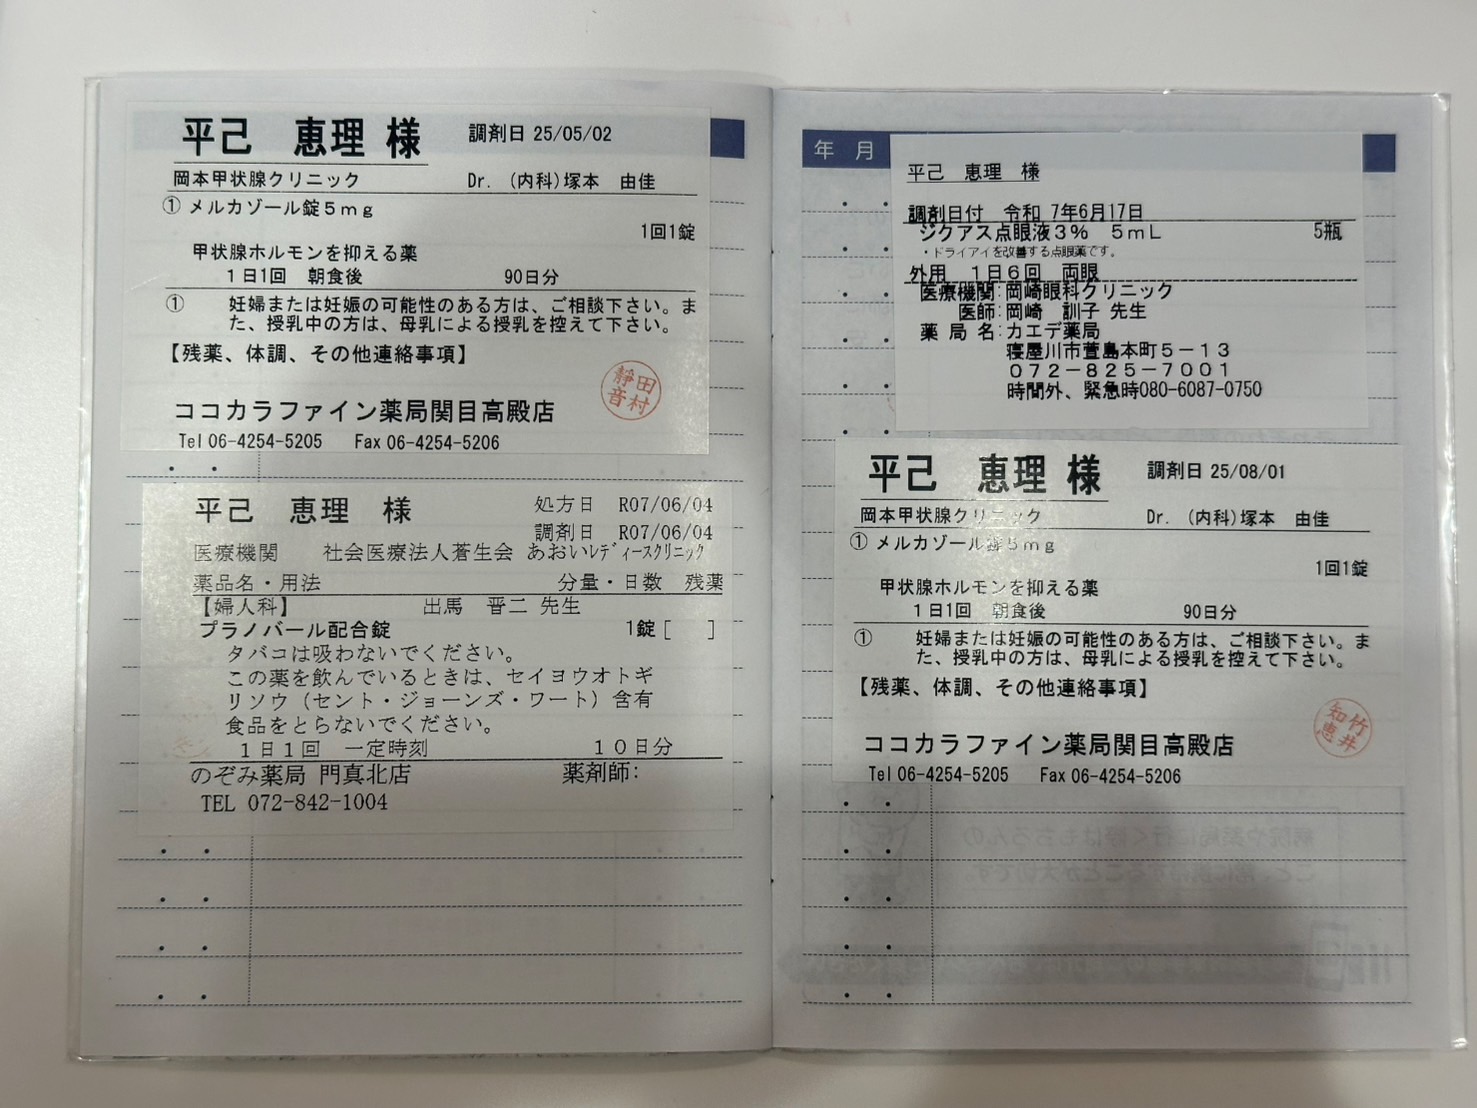 平己　恵理 様　調剤日 25/05/02
岡本甲状腺クリニック　Dr. (内科)塚本　由佳
① メルカゾール錠５ｍｇ
1回1錠
甲状腺ホルモンを抑える薬
１日1回　朝食後　90日分
①　妊婦または妊娠の可能性のある方は、ご相談下さい。ま
た、授乳中の方は、母乳による授乳を控えて下さい。
【残薬、体調、その他連絡事項】
田村 靜音
ココカラファイン薬局関目高殿店
Tel 06-4254-5205　Fax 06-4254-5206
平己　恵理　様　処方日　R07/06/04
調剤日　R07/06/04
医療機関　社会医療法人蒼生会 あおいﾚﾃﾞｨｰｽｸﾘﾆｯｸ
薬品名・用法　分量・日数　残薬
【婦人科】　出馬　晋二 先生
プラノバール配合錠　1錠 [　　]
タバコは吸わないでください。
この薬を飲んでいるときは、セイヨウオトギ
リソウ（セント・ジョーンズ・ワート）含有
食品をとらないでください。
１日１回　一定時刻　１０日分
のぞみ薬局 門真北店　薬剤師：
TEL 072-842-1004
年　月
平己　恵理　様
調剤日付　令和 7年6月17日
ジクアス点眼液３％　５ｍＬ　5瓶
・ドライアイを改善する点眼薬です。
外用　１日６回　両眼
医療機関：岡崎眼科クリニック
医師：岡崎　訓子 先生
薬 局 名：カエデ薬局
寝屋川市萱島本町５－１３
０７２－８２５－７００１
時間外、緊急時080-6087-0750
平己　恵理 様　調剤日 25/08/01
岡本甲状腺クリニック　Dr. (内科)塚本　由佳
① メルカゾール錠５ｍｇ
1回1錠
甲状腺ホルモンを抑える薬
１日1回　朝食後　90日分
①　妊婦または妊娠の可能性のある方は、ご相談下さい。ま
た、授乳中の方は、母乳による授乳を控えて下さい。
【残薬、体調、その他連絡事項】
竹井 知恵
ココカラファイン薬局関目高殿店
Tel 06-4254-5205　Fax 06-4254-5206